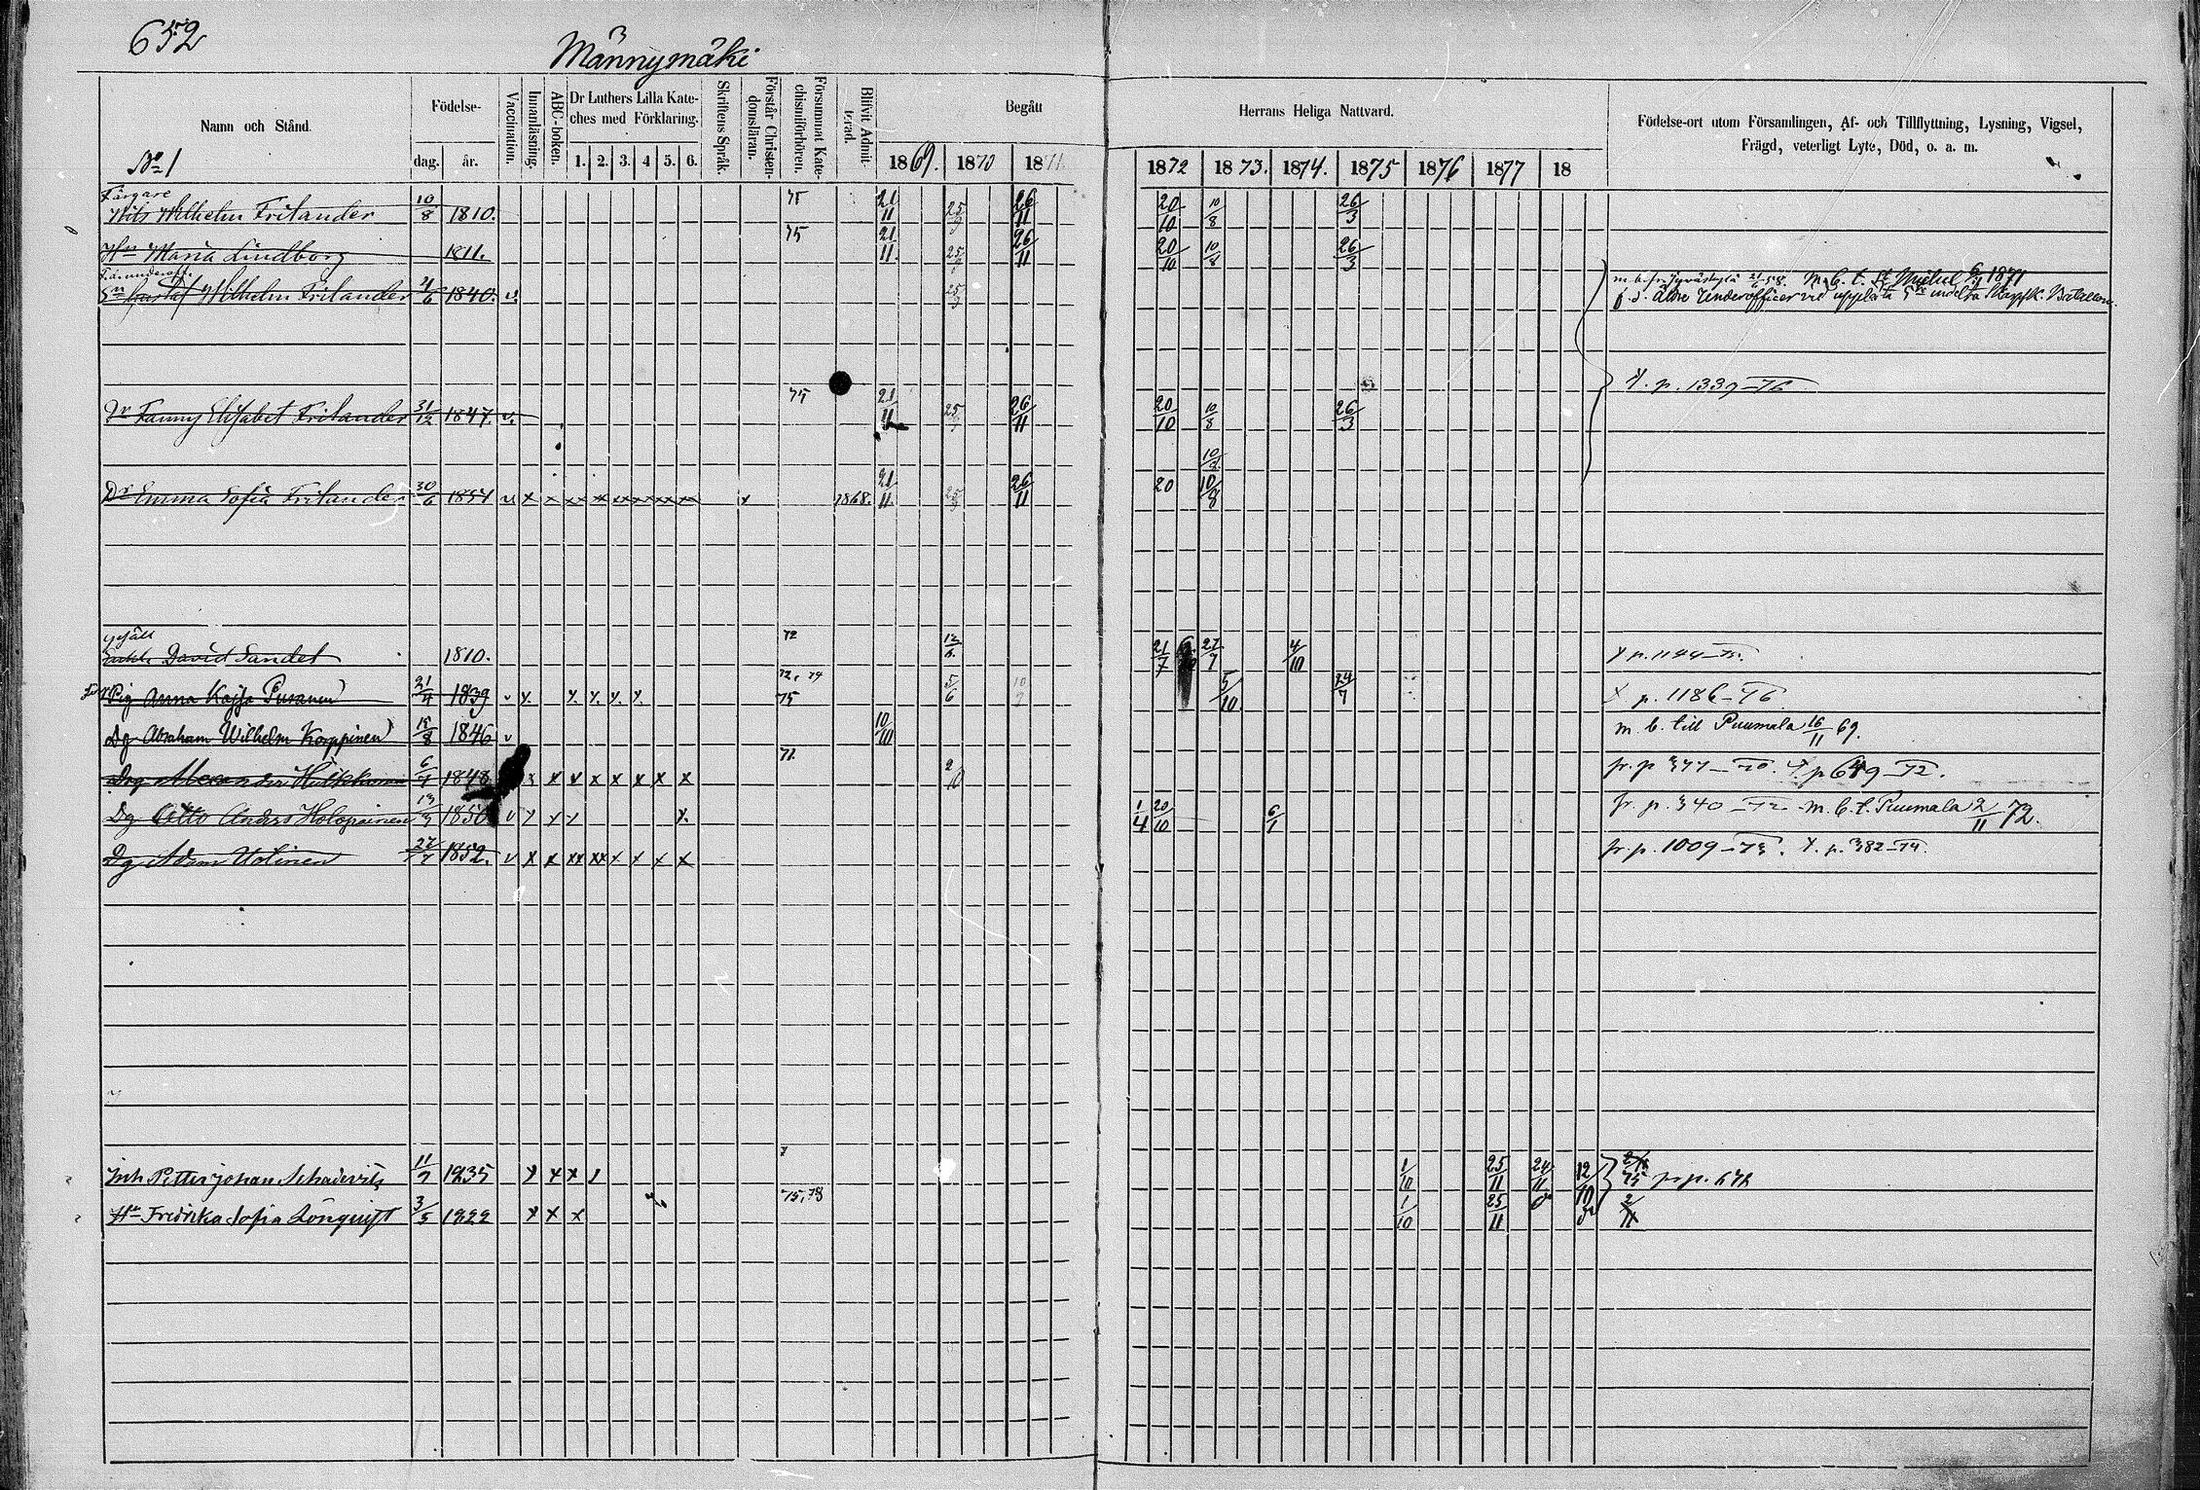 652
Männymäki
Namn och Stånd.
Födelse-
dag.
år.
Vaccination.
Innanläsning.
ABC-boken.
Dr Luthers Lilla Kate-
ches med Förklaring.
1. 2. 3. 4 5. 6.
Skriftens Språk.
Förstår Christen-
domsläran.
Försummat Kate-
chismiförhören.
Blifvit Admit-
terad.
Begått
Herrans Heliga Nattvard.
1869. 1870 1871.
1872 1873. 1874. 1875 1876 1877 18
Födelse-ort utom Församlingen, Af- och Tillflyttning, Lysning, Vigsel,
Frägd, veterligt Lyte, Död, o. a. m.
No 1
Färgare
Nils Wilhelm Frilander 10/8 1810. 75 21/11 25/9 26/11 20/10 10/8 26/3
Hn Maria Lindborg 1811. 75 21/11 26/11 20/10 10/8 26/3
Sn Gustaf Wilhelm Frilander 4/6 1840. v. 25/9
Äldre Underofficer vid
Y. p. 1339-76
Dr Fanny Elisabet Frilander 31/12 1847. v. 75 21/11 26/11 20/10 10/8 26/3
Dr Emma Sofia Frilander 30/6 1851 v x x xx xx xx xx xx xx 1868. 21/11 25/9 26/11 20 10/8
David Sandel 1810. 72 21/7 27/7 4/10 Y p. 1144-75.
Pig Anna Kajsa Puranen 21/4 1839 v 72, 74 75 5/6 5/10 24/7 Y p. 1186-76
Dg Abraham Wilhelm Korppinen 15/8 1846 v 10/10 m. b. till Puumala 16/11 69.
Drg Alexander Hulkkonen 6/4 1848 x x x x x x x 71. 2/10 fr. p 377-70. Y. p 649-72.
Dg Otto Anders Holopainen 13/3 1850 v 1/4 20/10 6/1 fr. p. 340-72 m. b. t. Puumala 2/11 72.
Dg Adam Uotinen 1852. v x x xx xx x x x x fr. p. 1009-73. Y. p. 382-74.
Inh Petter Johan Schadevitz 11/7 1835 1/10 25/11 24/11 12/10 75 fr p. 672
Hu Fredrika Sofia Lönqvist 3/5 1822 x x x 75, 78 1/10 25/11